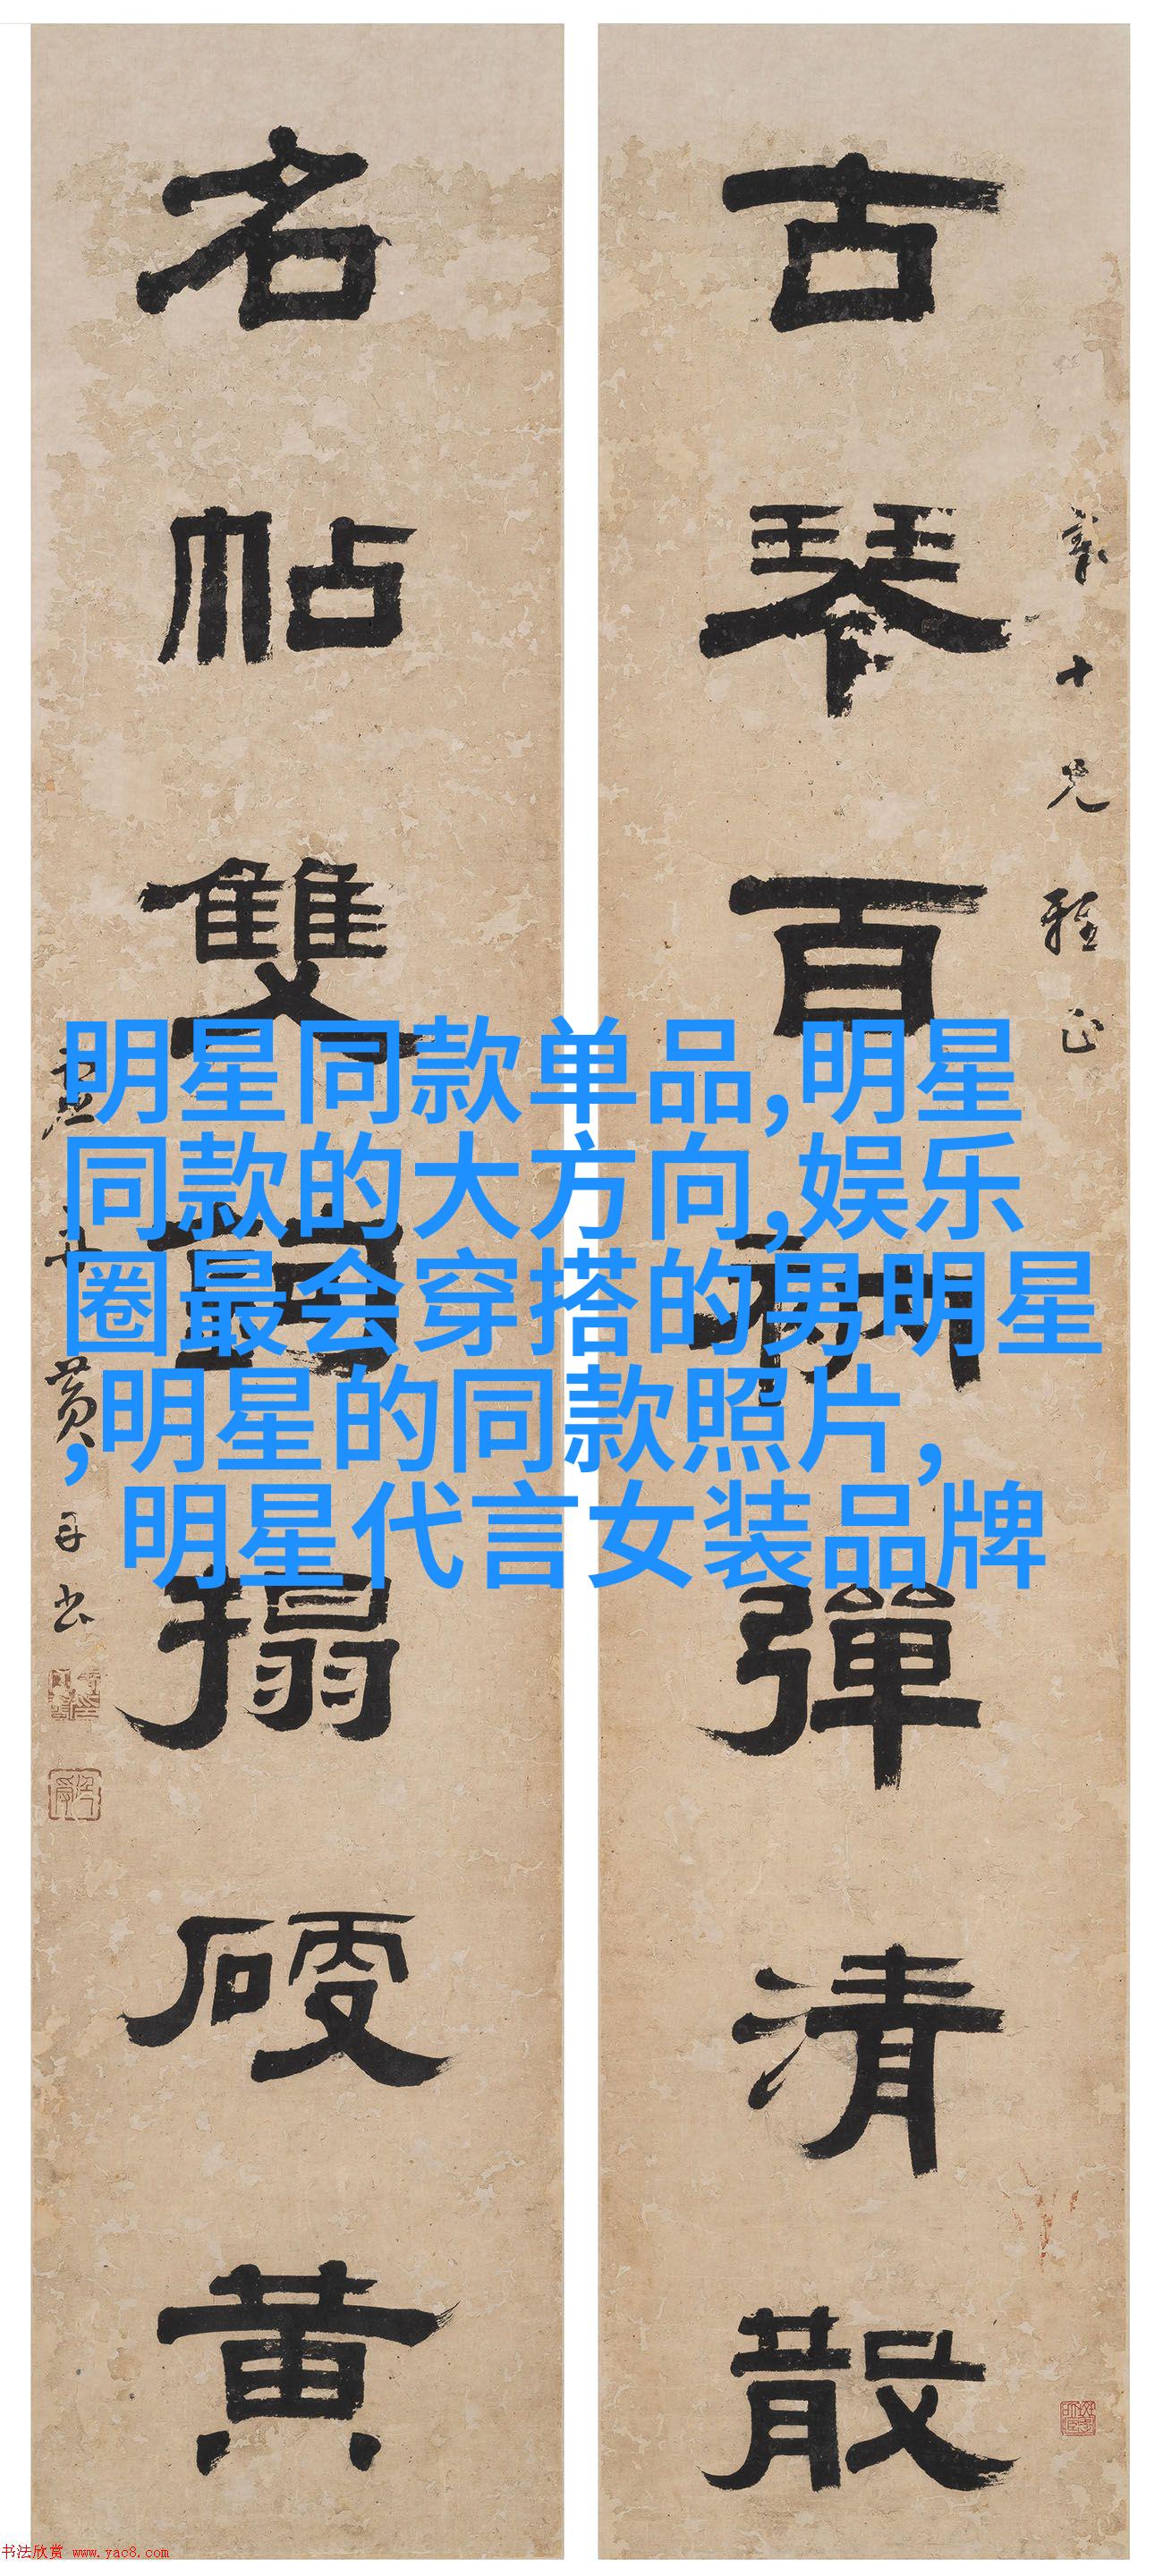 古琴百衲彈清散
十兄雅正
名帖雙鉤搨硬黄
明星同款单品,明星
同款的大方向,娱乐
圈最会穿搭的男明星
,明星的同款照片,
明星代言女装品牌
书法欣赏 www.yac8.com